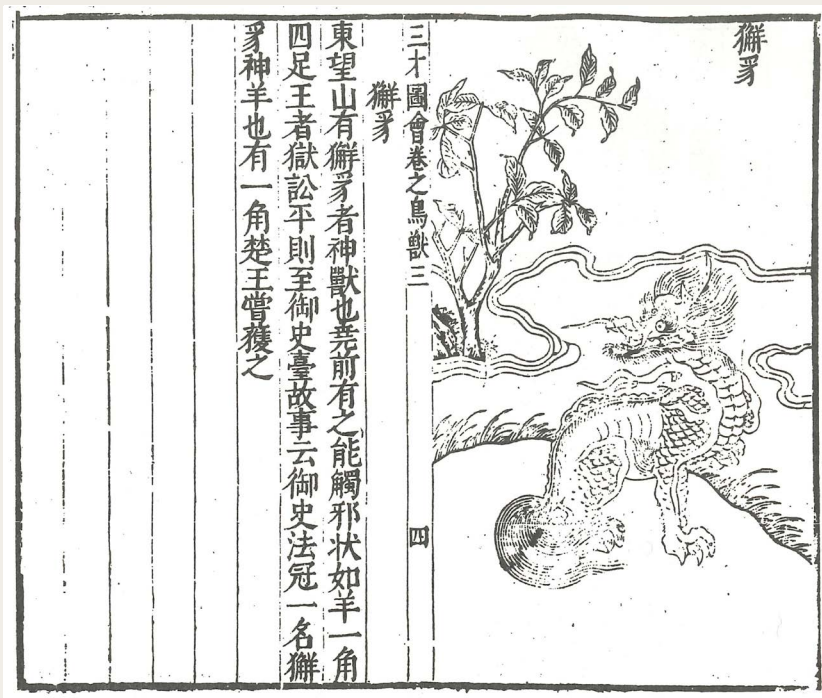 獬豸
三才圖會卷之鳥獸三
四
獬豸
東望山有獬豸者神獸也堯前有之能觸邪状如羊一角
四足王者獄訟平則至御史臺故事云御史法冠一名獬
豸神羊也有一角楚王嘗獲之